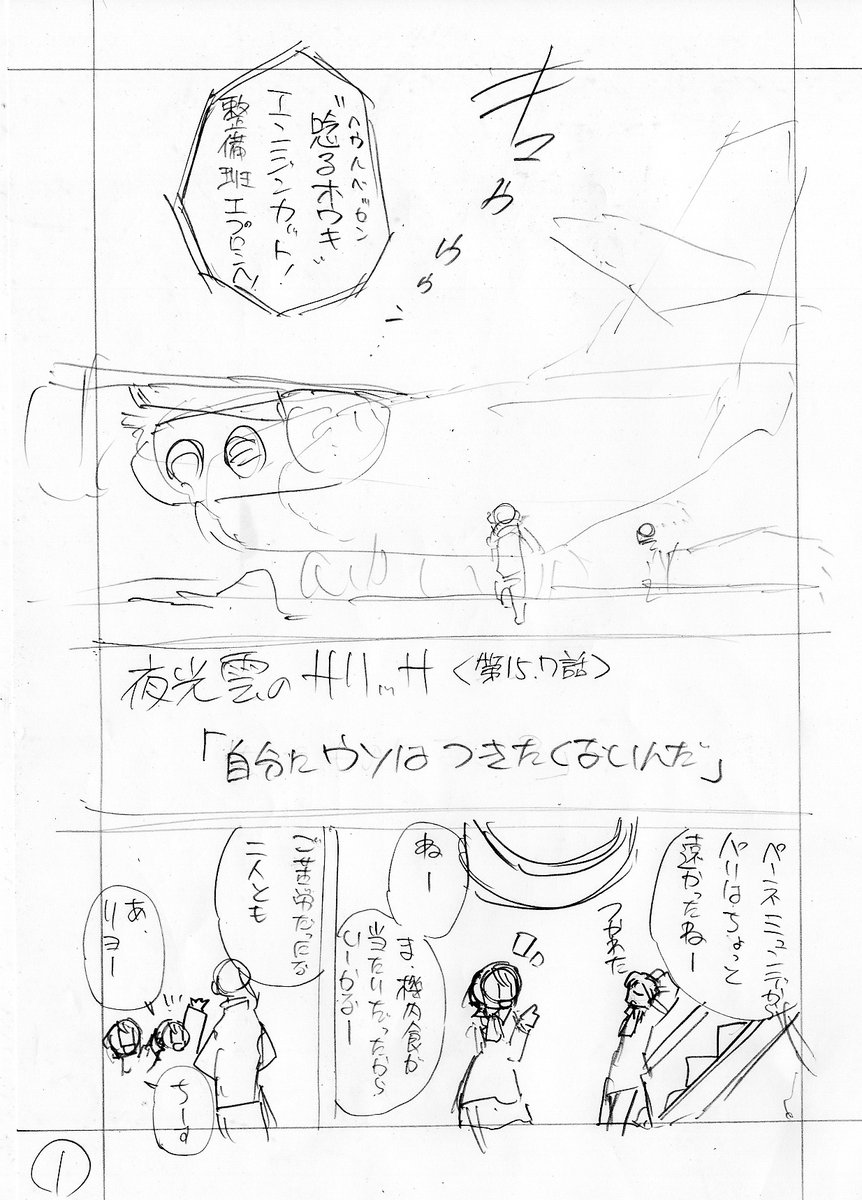 ハウルベゾン
"唸るホウキ"
エンジンカット!
整備班エプロンへ!
夜光雲のサリッサ〈第15.7話〉
「自分にウソはつきたくないんだ」
ペーネミュンデから
パリはちょっと
遠かったねー
つかれた
ねー
ま、機内食が
当たりだったから
いーかるー
ご苦労だったな
二人とも
あ、
リョー
ちーす
1